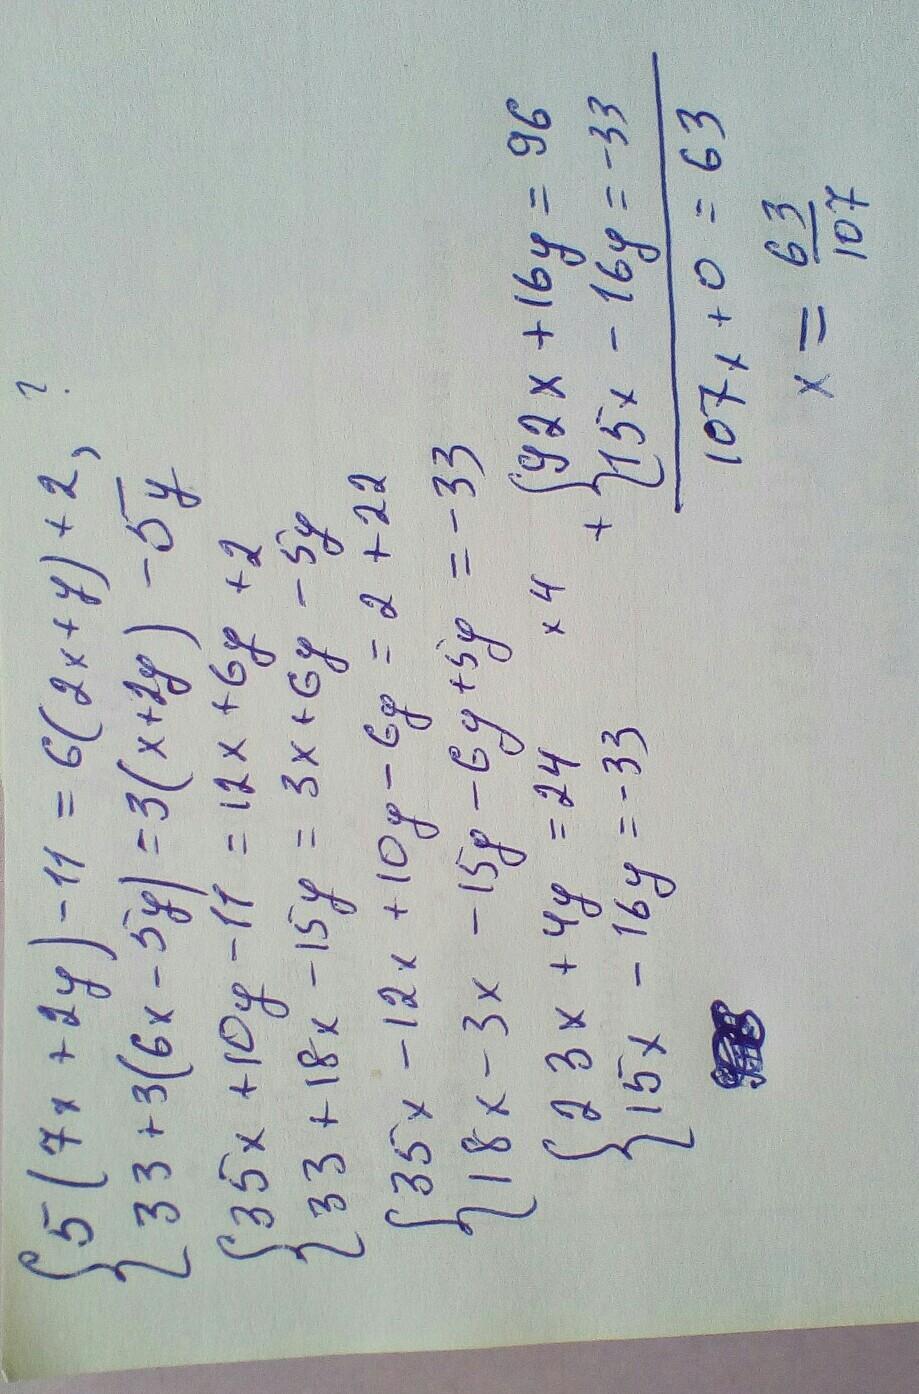 ?
{5(7x+2y)-11=6(2x+y)+2,
{33+3(6x-5y)=3(x+2y)-5y
{35x+10y-11=12x+6y+2
{33+18x-15y=3x+6y-5y
{35x-12x+10y-6y=2+22
{18x-3x-15y-6y+5y=-33
{23x+4y=24 ×4
{15x-16y=-33
+
{92x+16y=96
{15x-16y=-33
107x+0=63
x=63/107